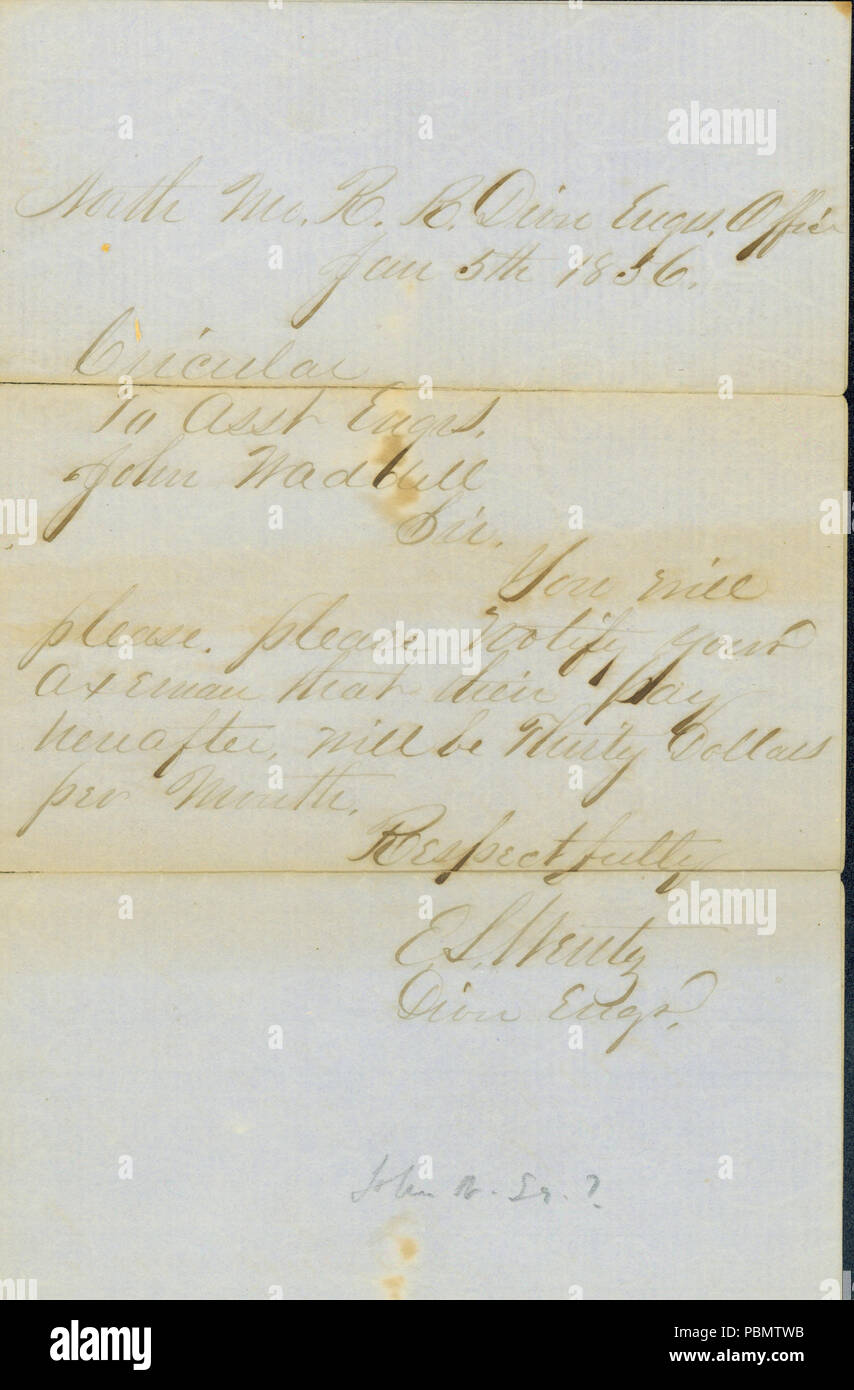 North Mo. R. R. Divn Engrs. Office
Jan 5th 1856.
Circular
To Asst Engrs.
John Waddell
Sir.
You will
please. please Notify your
axeman that their pay
hereafter, will be Thirty Dollars
per Month.
Respectfully
E. L. Wentz
Divn Engr.
John W. Sr. ?
alamy
alamy
alamy
Image ID: PBMTWB
www.alamy.com